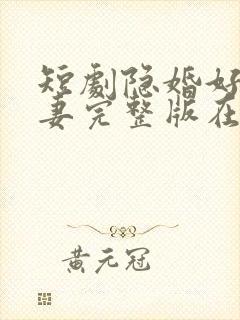 短劇隐婚好
妻完整版在
黄元冠